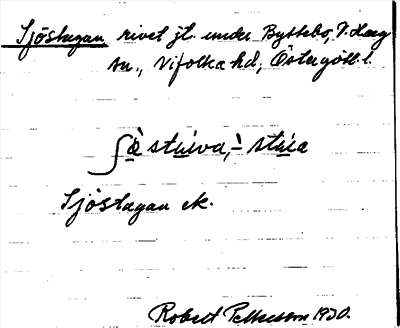 Sjöstugan rivet jt. under Byttebo, V. Harg
sn., Vifolka hd, Östergötl. l.
ʃö̀ stuva, ̀- stua
Sjöstugan ek.
Robert Pettersson 1930.